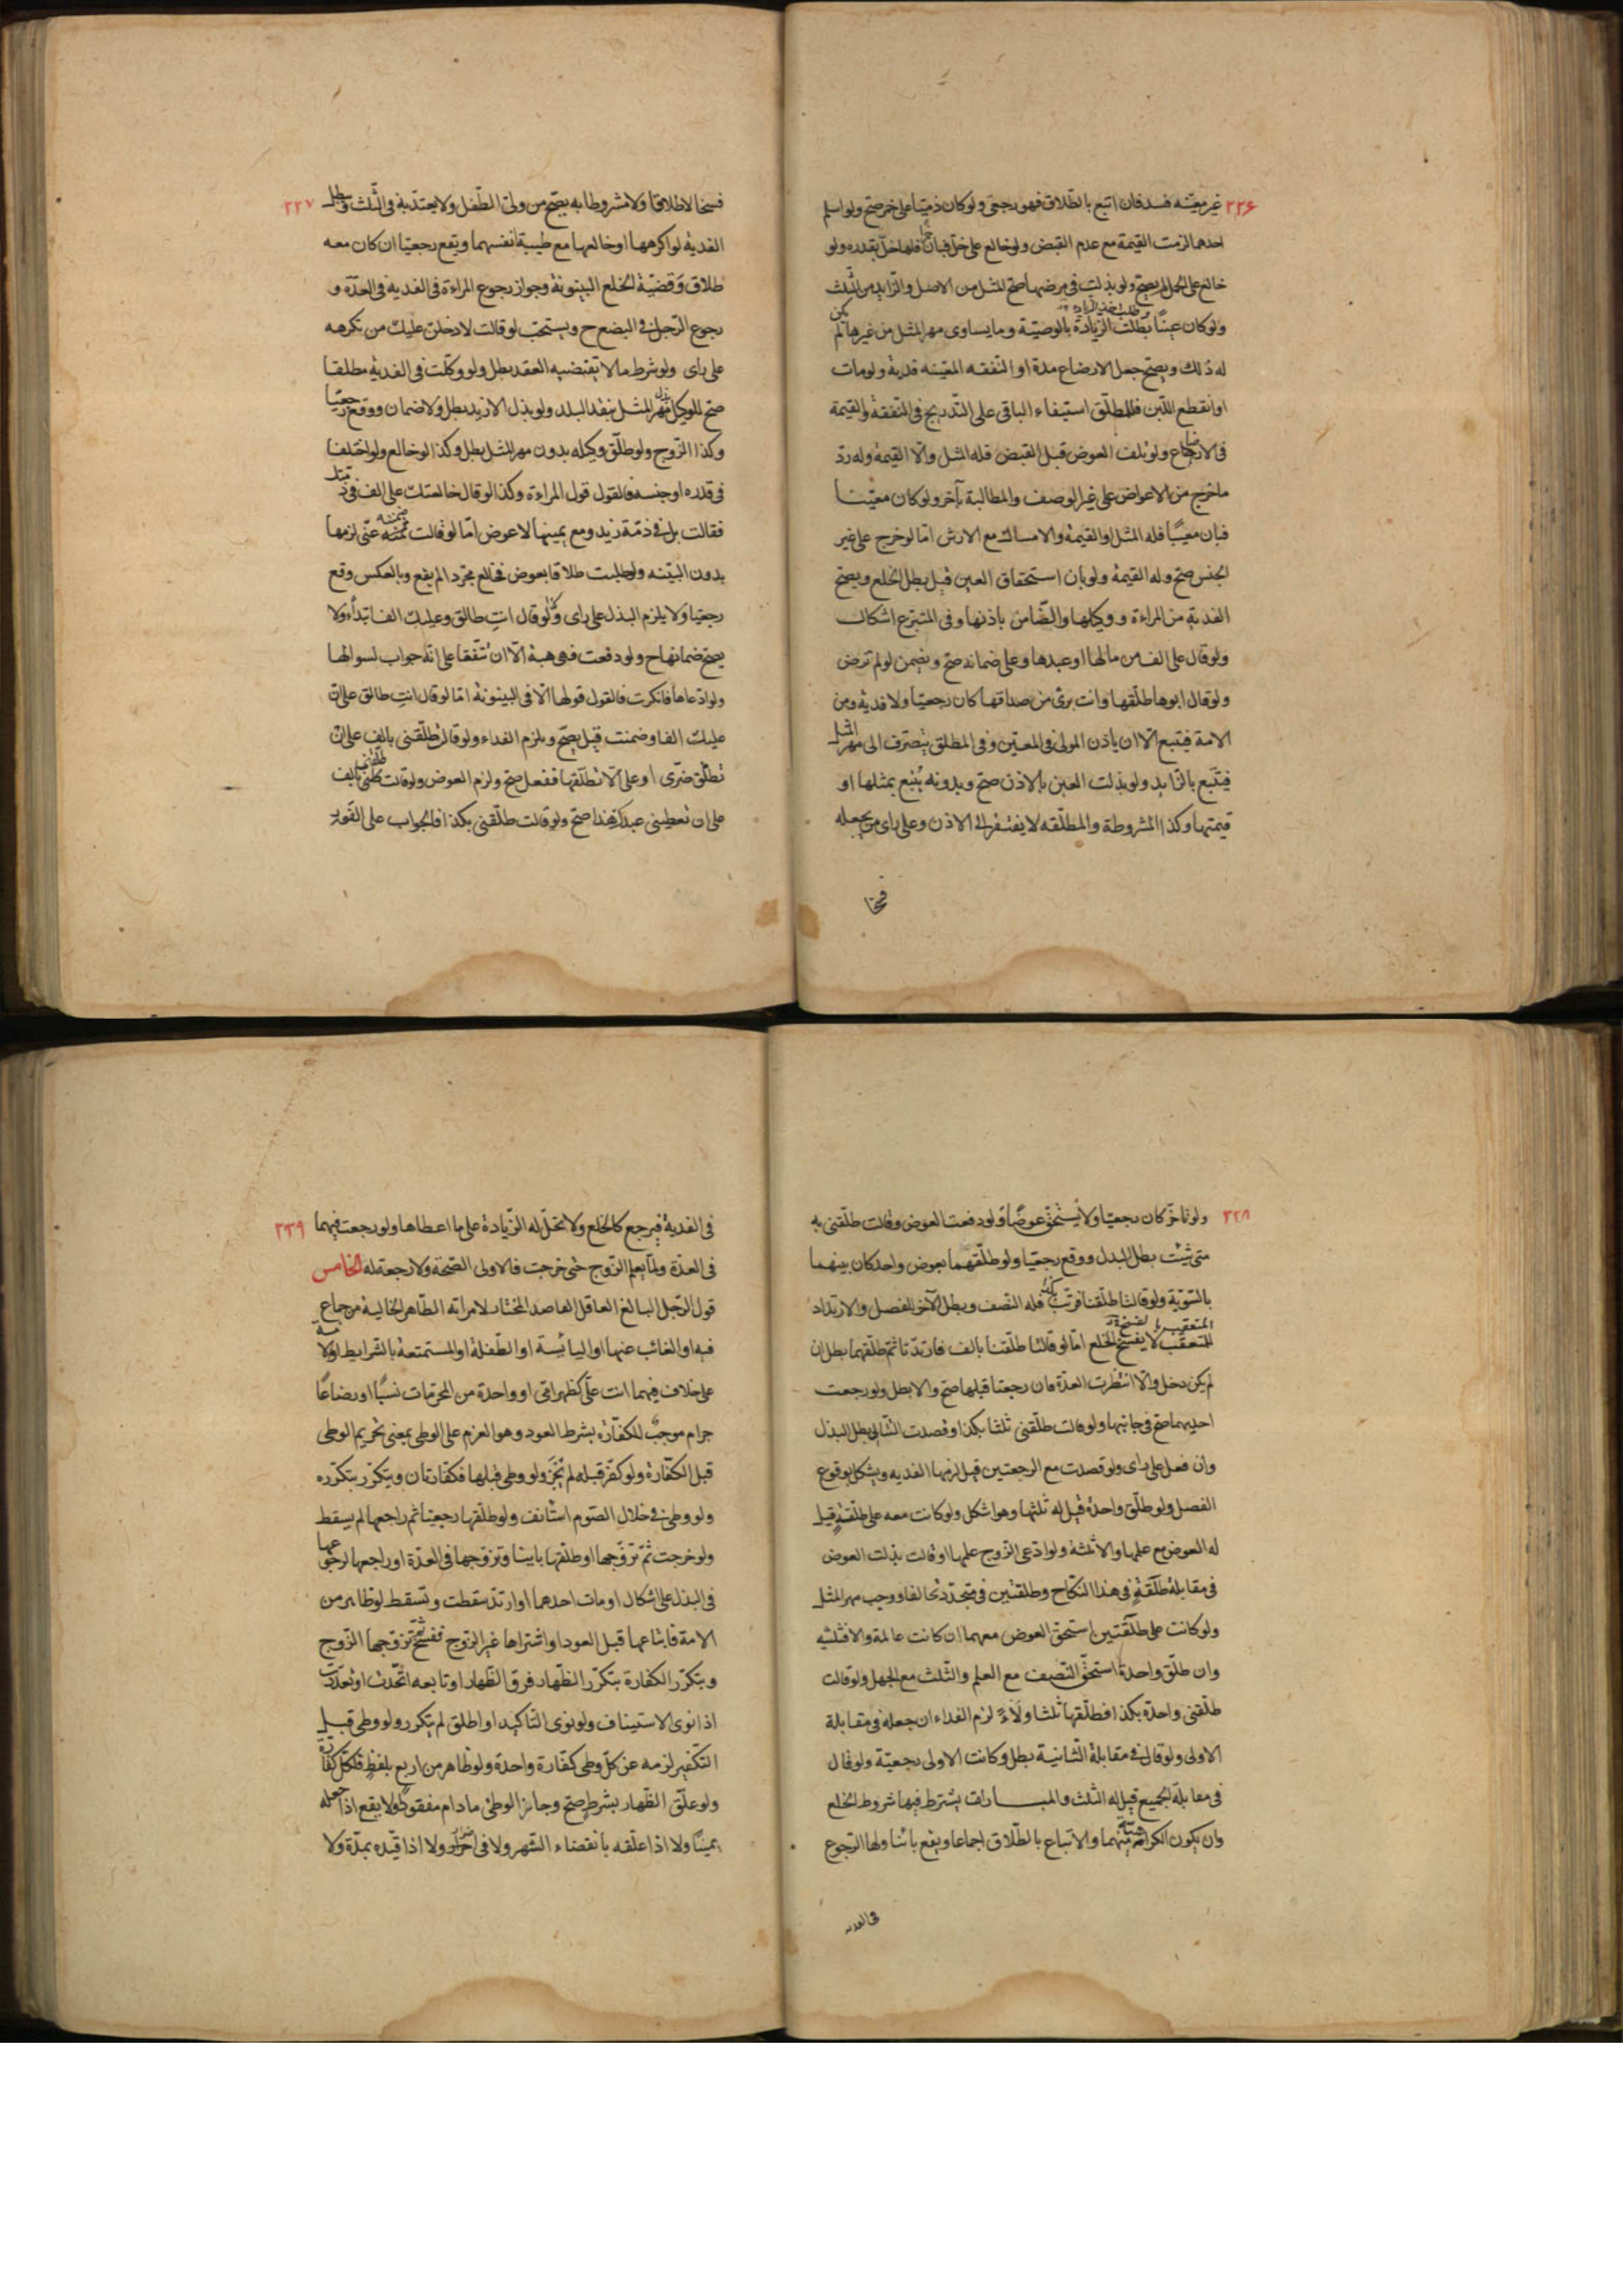 ٢٢۶
غير معيّنه فسد فان اتبع بالطلاق فهو رجعى ولو كان ذميّا على خمر صح ولو اسلم
احدهما لزمت القيمة مع عدم القبض ولو خالع على خلّ فبان خمرا فلها خلّ بقدره ولو
خالع على الحمل لم يصح ولو بذلت فى مرضها صح المثل من الاصل والزايد من الثلث
ولو كان عينًا بطلت الزيادة بالوصيّة وما يساوى مهر المثل من غيرها لم يكن
له ذلك ويصح جعل الارضاع مدة او النفقه المعيّنه فدية ولو مات
او انقطع اللبن فللمطلّق استيفاء الباقى على التدريج فى النفقة والقيمة
فى الارضاع ولو تلف العوض قبل القبض فله المثل والّا القيمة وله ردّ
ما خرج من الاعواض على غير الوصف والمطالبة بآخر ولو كان معيّنا
فبان معيبًا فله المثل او القيمة والامساك مع الارش امّا لو خرج على غير
الجنس صح وله القيمة ولو بان استحقاق العين قيل بطل الخلع ويصح
الفدية من المراءة ووكيلها والضّامن باذنها وفى المتبرّع اشكال
ولو قال على الف من مالها او عبدها وعلى ضمانه صح ويضمن لو لم ترض
ولو قال ابوها طلّقها وانت برئ من صداقها كان رجعيّا ولا فدية ومن
الامة فيتبع الّا ان ياذن المولى فى المعيّن وفى المطلق يتصرف الى مهر المثل
فيتّبع بالزايد ولو بذلت العين بالاذن صح وبدونه يُتبع بمثلها او
قيمتها وكذا المشروطة والمطلّقه لا يفتقر الى الاذن وعلى راى من يجعله
فسخا
٢٢٧
فسخا لا طلاقا ولا مشروطا به يصح من ولىّ الطّفل ولا يعتدّ به فى الثلث وبطل
الفدية لو اكرهها او خالعها مع طيبة انفسهما ويقع رجعيّا ان كان معه
طلاق وقضيّة الخلع البينونة وجواز رجوع المراءة فى الفدية فى العدّة و
رجوع الرّجل فى البضع ح ويستحب لو قالت لادخلن عليك من تكرهه
على راى ولو شرط ما لا يقتضيه العقد بطل ولو وكّلت فى الفدية مطلقا
صح للوكيل بذل مهر المثل بنقد البلد ولو بذل الازيد بطل ولا ضمان ووقع رجعيّا
وكذا الزوج ولو طلّق وكيله بدون مهر المثل بطل وكذا لو خالع ولو اختلفا
فى قدره او جنسه فالقول قول المراءة وكذا لو قال خالعتك على الف فى ذمّتك
فقالت بل فى ذمّة زيد ومع يمينها لا عوض امّا لو قالت ضمنه عنّى لزمها
بدون البيّنه ولو طلبت طلاقا بعوض فخالع مجرّدا لم يقع وبالعكس وقع
رجعيّا ولا يلزم البذل على راى ولو قال انتِ طالق وعليك الف ابتداءً ولا
يصح ضمانها ح ولو دفعت فهى هبة الّا ان تتّفقا على انّه جواب لسوالها
ولو ادّعاها فانكرت فالقول قولها الّا فى البينونة امّا لو قال انتِ طالق على انّ
عليك الفا وضمنت قيل يصح ويلزم الفداء ولو قالت طلّقنى بالف على ان
تطلّق ضرّتى او على الّا تطلّقها ففعل صح ولزم العوض ولو قالت طلّقنى بالف
على ان تعطينى عبدك هذا صح ولو قالت طلّقنى بكذا فالجواب على الفور
٢٢٨
ولو تاخّر كان رجعيّا ولا يستحقّ عوضًا ولو دفعت العوض وقالت طلّقنى به
متى شئت بطل البدل ووقع رجعيّا ولو طلّقهما بعوض واحد كان بينهما
بالسّويّة ولو قالتا طلّقنا فرتّب كان فله النصف وبطل الآخر للفصل والارتداد
المتعقّب لا يفسخ الخلع امّا لو قالتا طلّقنا بالف فارتدّتا ثم طلّقهما بطل ان
لم يكن دخل والّا انتظرت العدّة فان رجعتا قبلها صح والا بطل ولو رجعت
احديهما صح فى جانبها ولو قالت طلّقنى ثلثا بكذا وقصدت الثلث الى بطل البذل
وان فعل على راى ولو قصدت مع الرجعتين قيل لزمها الفديه ويشكل بوقوع
الفصل ولو طلّق واحدة قيل له ثلثها وهو اشكل ولو كانت معه على طلقة قيل
له العوض مع علمها والا ثلثه ولو ادعى الزوج علمها او قالت بذلت العوض
فى مقابلة طلقة فى هذا النكاح وطلقتين فى متجدّد تحالفا ووجب مهر المثل
ولو كانت على طلقتين استحق العوض معهما ان كانت عالمة والا فثلثيه
وان طلّق واحدة استحقّ النصف مع العلم والثّلث مع الجهل ولو قالت
طلّقنى واحدة بكذا فطلّقها ثلثا ولاءً لزم الفداء ان جعله فى مقابلة
الاولى ولو قال فى مقابلة الثانية بطل وكانت الاولى رجعيّة ولو قال
فى مقابلة الجميع قيل له الثلث والمبارات يشترط فيها شروط الخلع
وان يكون الكراهيّة منهما والاتباع بالطّلاق اجماعا ويقع بائنا ولها الرّجوع
فى الفديه
٢٣٩
فى الفدية فيرجع كالخلع ولا تحلّ له الزّيادة على ما اعطاها ولو رجعت فيهما
فى العدّة ولمّا يعلم الزّوج حتى خرجت فالاولى الصّحة ولا رجعة له الخامس
قول الرّجل البالغ العاقل القاصد المختار لامراته الطّاهر الخالية من جماع
فيه او الغائب عنها او اليائسة او الطّفلة او المستمتعة بالشرايط او الامة
على خلاف فيهما انت علّى كظهر امّى او واحدة من المحرمات نسبًا او رضاعًا
حرام موجبٌ للكفّارة بشرط العود وهو العزم على الوطى بمعنى تحريم الوطى
قبل الكفّارة ولو كفّر قبله لم تُجز ولو وطى قبلها فكفّارتان ويتكرّر بتكرّره
ولو وطئ فى خلال الصّوم استانف ولو طلّقها رجعيّا ثم راجعها لم يسقط
ولو خرجت ثمّ تزوّجها او طلّقها باينا وتزوجها فى العدّة او راجعها لرجوعها
فى البذل على اشكال او مات احدهما او ارتدّ سقطت وتسقط لو ظاهر من
الامة فابتاعها قبل العود او اشتراها غير الزوج ففسخ ثمّ تزوّجها الزّوج
ويتكرّر الكفّارة بتكرّر الظّهار فرق الظّهار او تابعه اتّحدت او تعدّدت
اذا نوى الاستيناف ولو نوى التاكيد او اطلق لم يتكرر ولو وطى قبل
التكفير لزمه عن كلّ وطى كفّارة واحدة ولو ظاهر من اربع بلفظٍ فلكلّ كفّارة
ولو علّق الظّهار بشرطٍ صح وجاز الوطئ ما دام مفقودًا ولا يقع اذا جعله
يمينًا ولا اذا علّقه بانقضاء الشّهر ولا فى اضرار ولا اذا قيّده بمدّة ولا